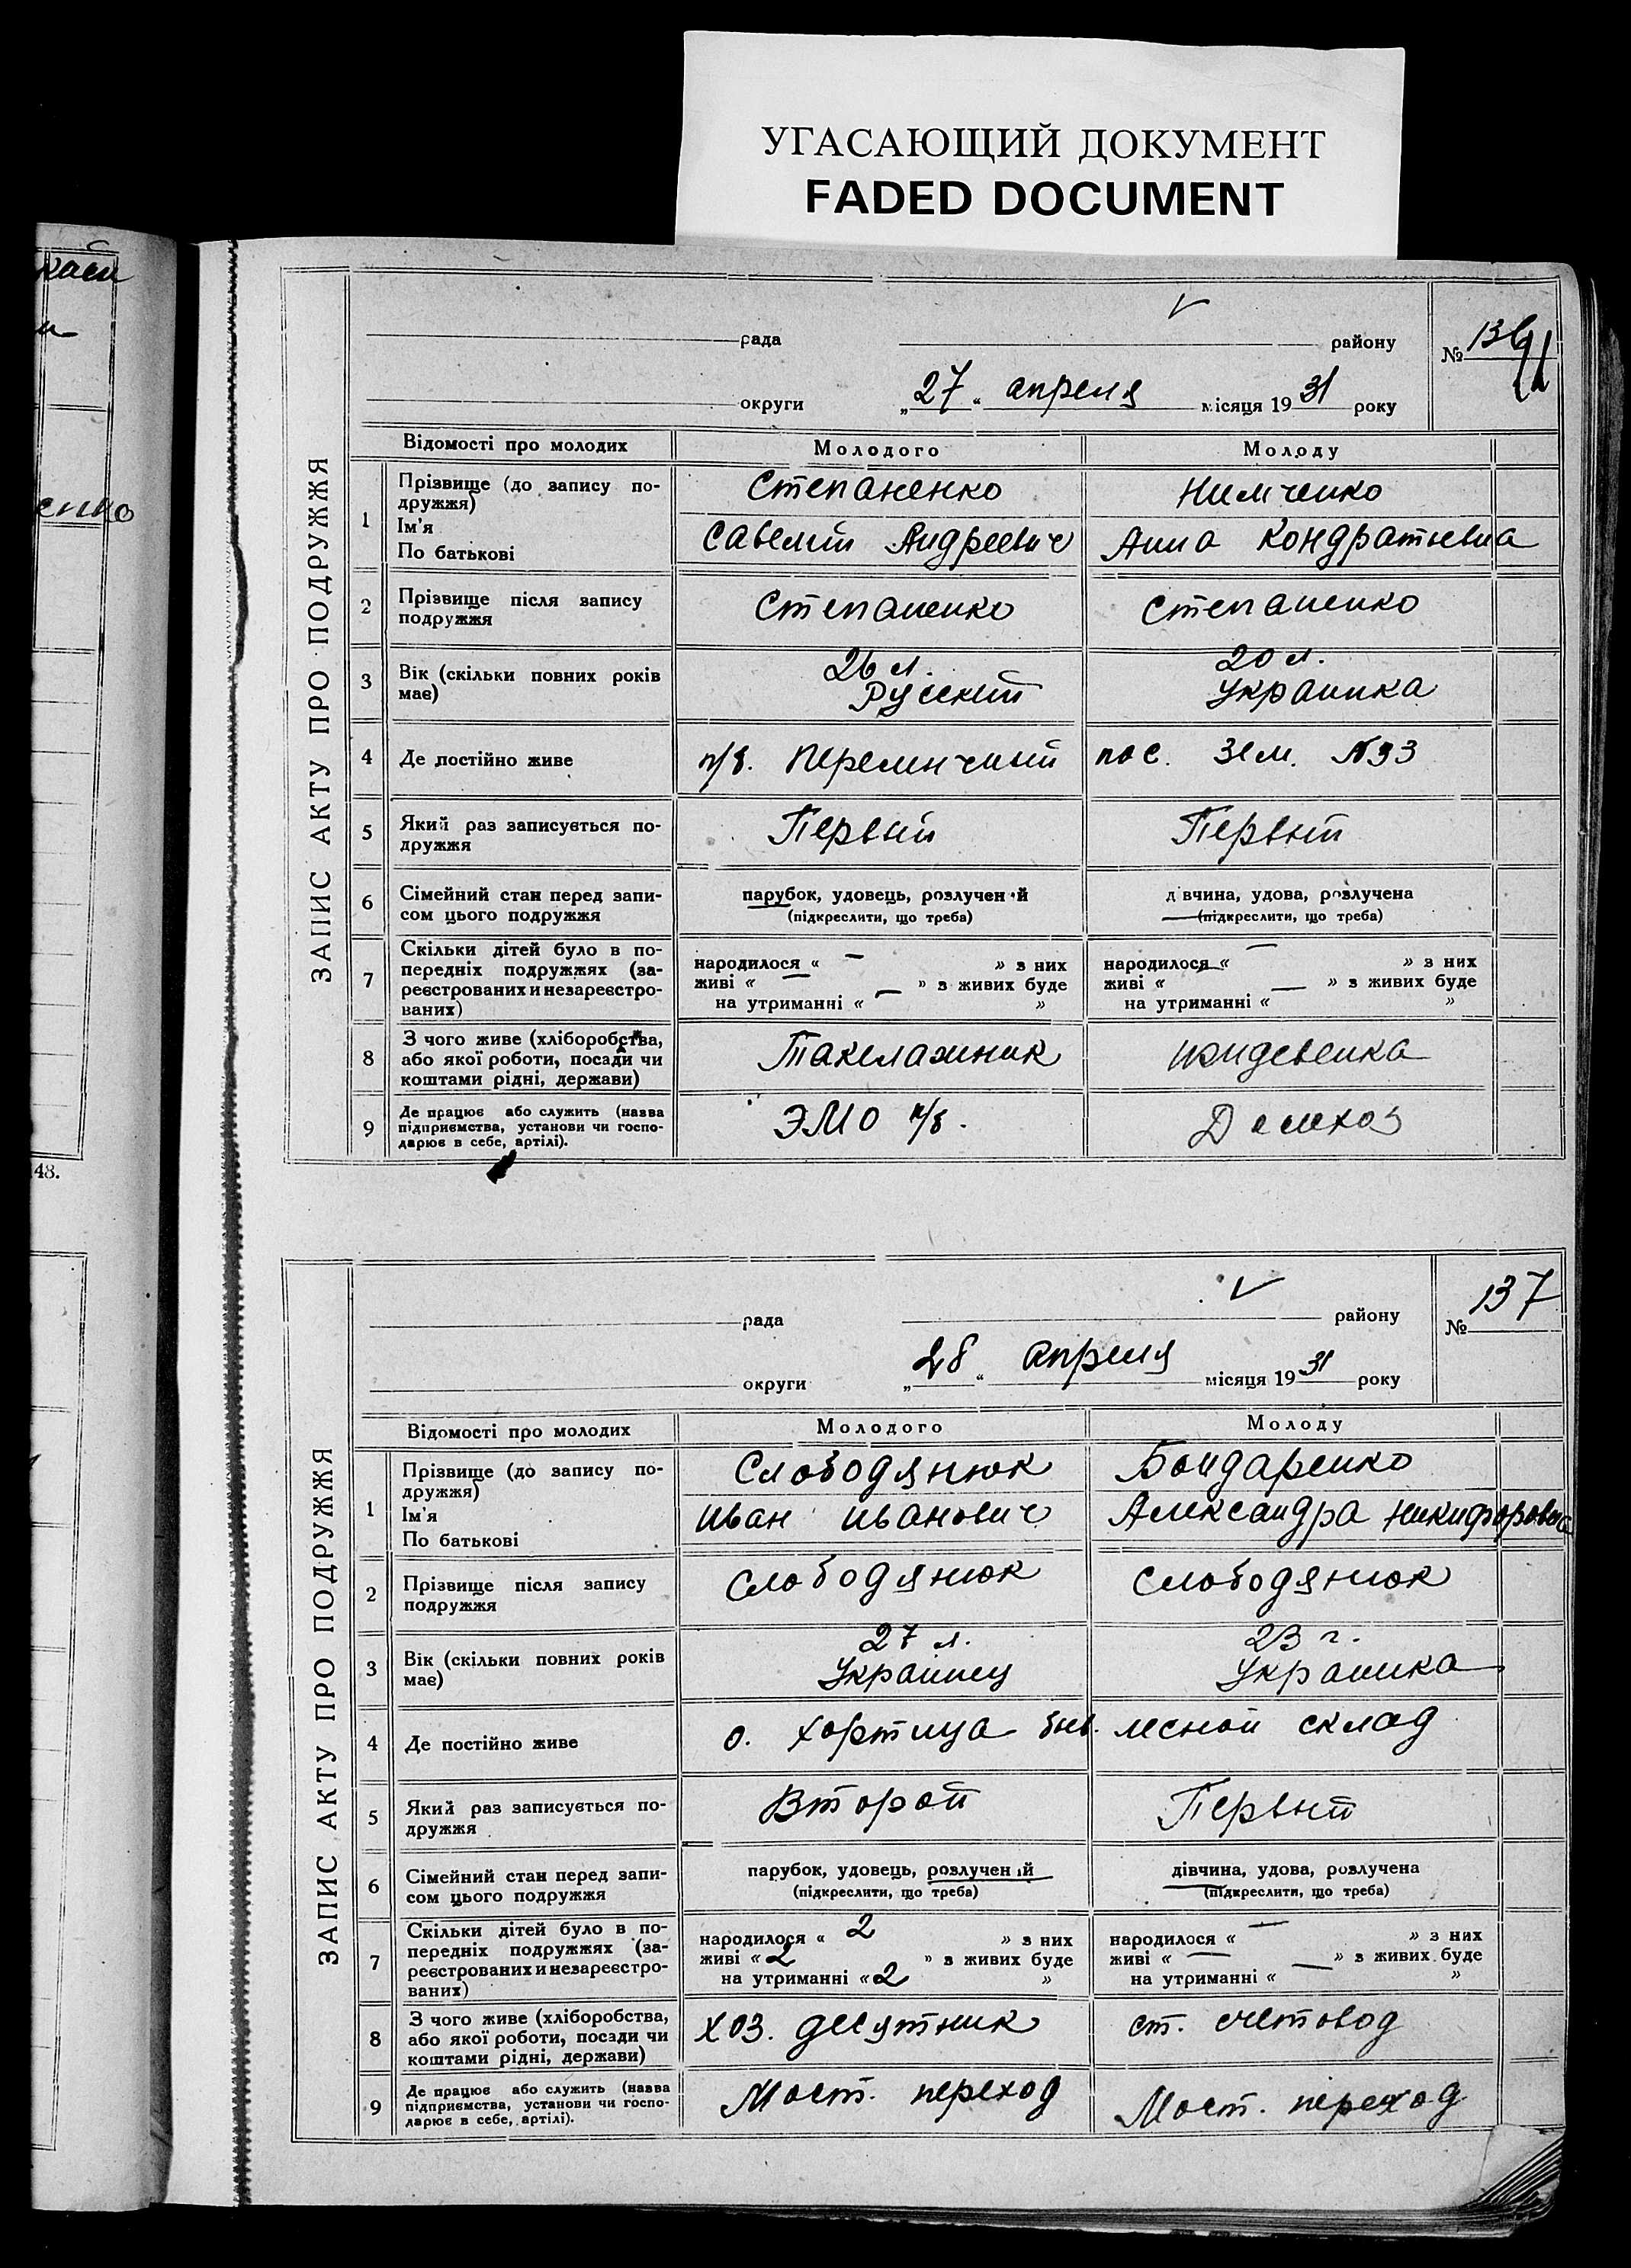 УГАСАЮЩИЙ ДОКУМЕНТ
FADED DOCUMENT
енко
48.
ЗАПИС АКТУ ПРО ПОДРУЖЖЯ
рада району
№ 136
91
округи „27“ апреля місяця 1931 року
Відомості про молодих Молодого Молоду
1 Прізвище (до запису по- Степаненко Нимченко
дружжя)
Ім'я Савелий Андреевич Анна Кондратьевна
По батькові
2 Прізвище після запису Степаненко Степаненко
подружжя
3 Вік (скільки повних років 26 л. 20 л.
має) Русский Украинка
4 Де постійно живе п/в. пос. Зем. №33
5 Який раз записується по- Первый Первый
дружжя
6 Сімейний стан перед запи- парубок, удовець, розлучений дівчина, удова, розлучена
сом цього подружжя (підкреслити, що треба) (підкреслити, що треба)
7 Скільки дітей було в по- народилося « — » з них народилося « — » з них
передніх подружжях (за- живі « — » з живих буде живі « — » з живих буде
реєстрованих и незареєстро- на утриманні « — » на утриманні « »
ваних)
8 З чого живе (хліборобства, Такелажник иждевенка
або якої роботи, посади чи
коштами рідні, держави)
9 Де працює або служить (назва ЭМО п/в.
підприємства, установи чи госпо-
дарює в себе, артілі).
ЗАПИС АКТУ ПРО ПОДРУЖЖЯ
рада району
№ 137
округи „28“ апреля місяця 1931 року
Відомості про молодих Молодого Молоду
1 Прізвище (до запису по- Слободянюк Бондаренко
дружжя)
Ім'я Иван Иванович Александра Никифоровна
По батькові
2 Прізвище після запису Слободянюк Слободянюк
подружжя
3 Вік (скільки повних років 27 л. 23 г.
має) Украинец Украинка
4 Де постійно живе о. Хортица быв. лесной склад
5 Який раз записується по- Второй Первый
дружжя
6 Сімейний стан перед запи- парубок, удовець, розлучений дівчина, удова, розлучена
сом цього подружжя (підкреслити, що треба) (підкреслити, що треба)
7 Скільки дітей було в по- народилося « 2 » з них народилося « — » з них
передніх подружжях (за- живі « 2 » з живих буде живі « — » з живих буде
реєстрованих и незареєстро- на утриманні « 2 » на утриманні « — »
ваних)
8 З чого живе (хліборобства, хоз. десятник ст. счетовод
або якої роботи, посади чи
коштами рідні, держави)
9 Де працює або служить (назва Мост. переход Мост. переход
підприємства, установи чи госпо-
дарює в себе, артілі).